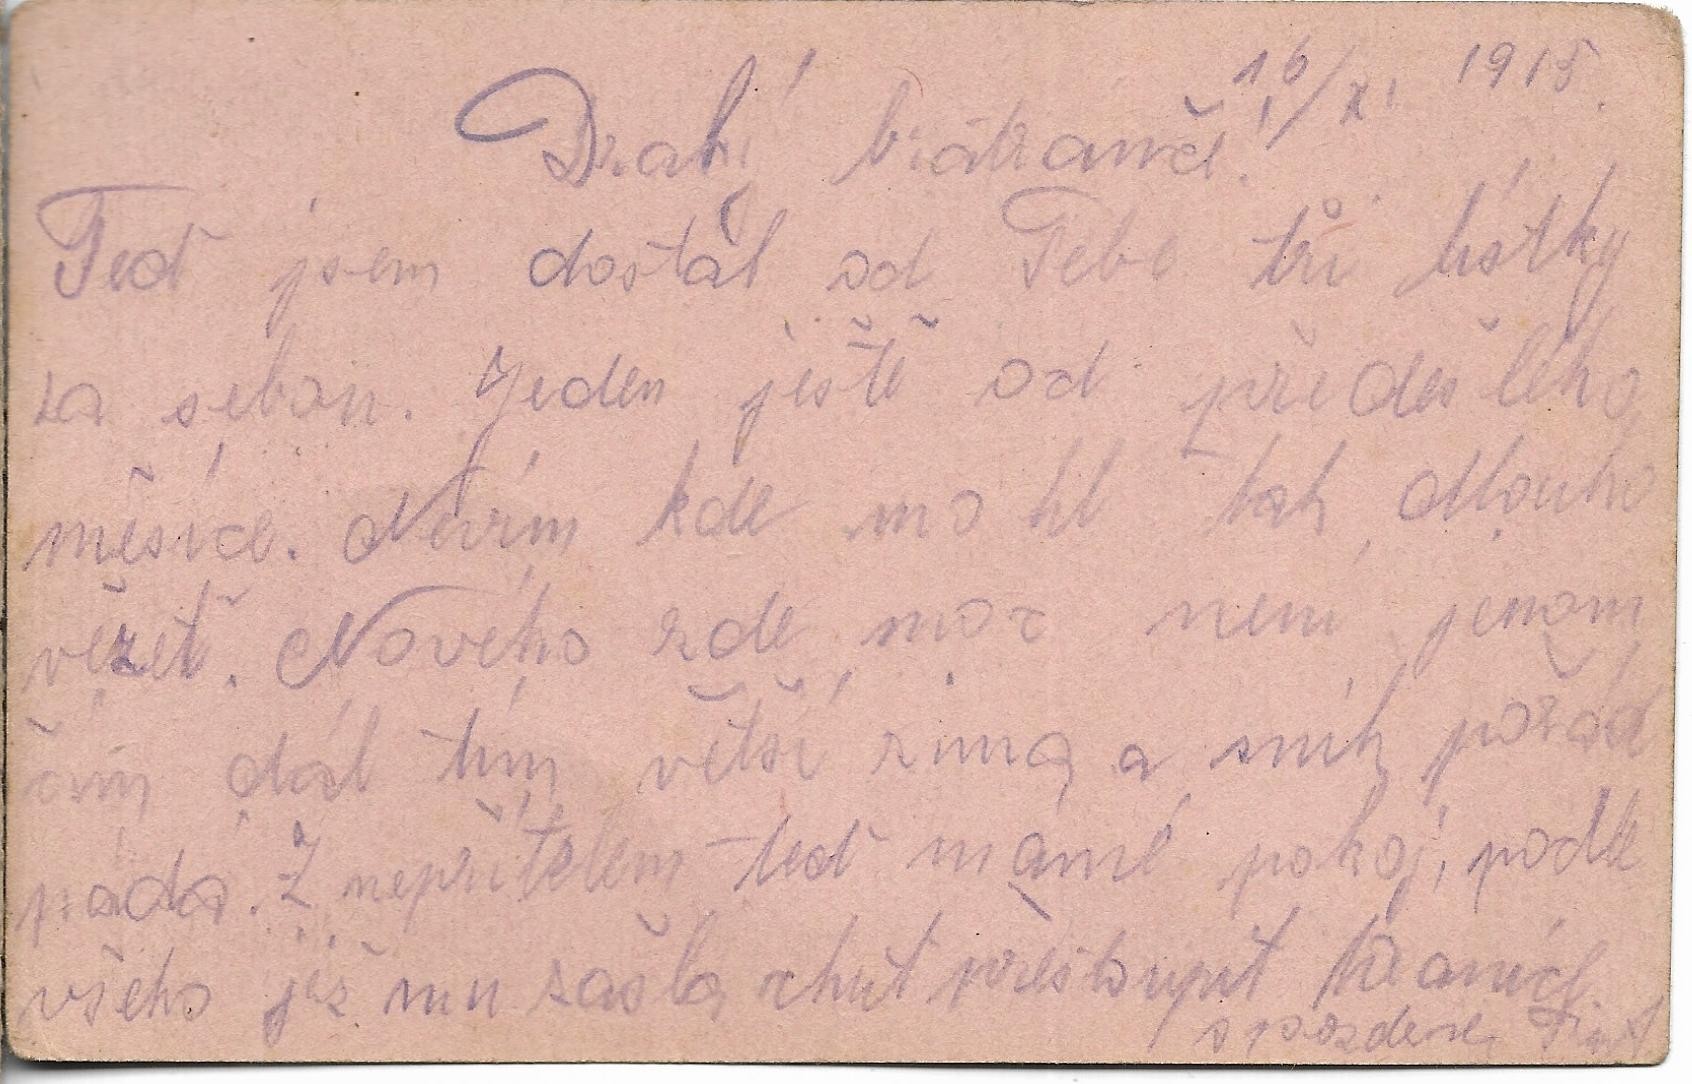 16/XI 1915.
Drahí bratranče!
Teď jsem dostal od Tebe tři lístky
za sebou. Jeden ještě od předešlého
měsíce. Nevím kde mohl tak dlouho
vězet. Nového zde moc není jenom
čím dál tím větší zima a sníh pořád
padá. Z nepřítelem teď máme pokoj, podle
všeho jež mu zašla chuť přestoupit hranice.
s pozdravem